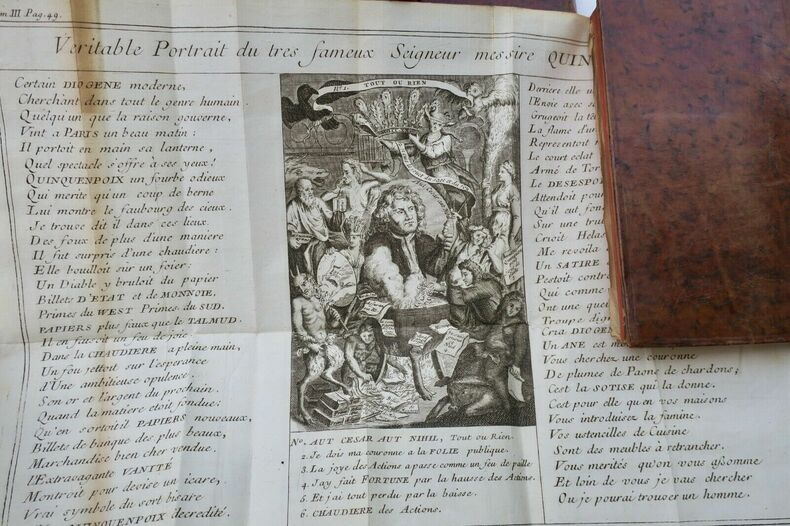 m III Pag. 49.
Veritable Portrait du tres fameux Seigneur messire QUIN
Certain DIOGENE moderne,
Cherchant dans tout le genre humain
Quelqu'un que la raison gouverne,
Vint a PARIS un beau matin:
Il portoit en main sa lanterne,
Quel spectacle s'offre à ses yeux!
QUINQUENPOIX un fourbe odieux
Qui merite qu'un coup de berne
Lui montre le faubourg des cieux.
Je trove dit il dans ces lieux
Des foux de plus d'une maniere
Il fut surpris d'une chaudiere:
Elle bouilloit sur un foier;
Un Diable y bruloit du papier
Billets D'ETAT et de MONNOIE,
Primes du WEST Primes du SUD.
PAPIERS plus faux que le TALMUD.
Il en faisoit un feu de joie.
Dans la CHAUDIERE a pleine main,
Un fou jettoit sur l'esperance
d'Une ambitieuse opulence.
Son or et l'argent du prochain.
Quand la matiere etoit fondue:
Qu'en sortoit-il PAPIERS nouveaux,
Billets de banque des plus beaux,
Marchandise bien cher vendue.
l'Extravagante VANITÉ
Montroit pour devise un icare,
Vrai symbole du sort bisare
QUINQUENPOIX decredité.
No. 1. TOUT OU RIEN
No. 1. AUT CESAR AUT NIHIL, Tout ou Rien.
2. Je dois ma couronne a la FOLIE publique.
3. La joye des Actions a passe comme un feu de paille
4. Jay fait FORTUNE par la hausse des Actions.
5. Et j'ai tout perdu par la baisse.
6. CHAUDIERE des Actions.
Derriere elle u
l'Envie avec s
Grugeoit la tê
La flame d'un
Representoit
Le court eclat
Armé de Tor
Le DESESPO
Attendoit pou
Qu'il eut fon
Sur une tru
Crioit Hela
Me revoila
Un SATIRE
Pestoit contr
Qui comme
Ont une que
Troupe dig
Cria DIOGE
Un ANE est m
Vous cherchez une couronne
De plumee de Paons de chardons;
C'est la SOTISE qui la donne.
C'est pour elle qu'en vos maisons
Vous introduisez la famine.
Vos ustenciles de Cuisine
Sont des meubles à retrancher.
Vous merités qu'on vous assomme
Et loin de vous je vais chercher
Ou je pourai trouver un homme.